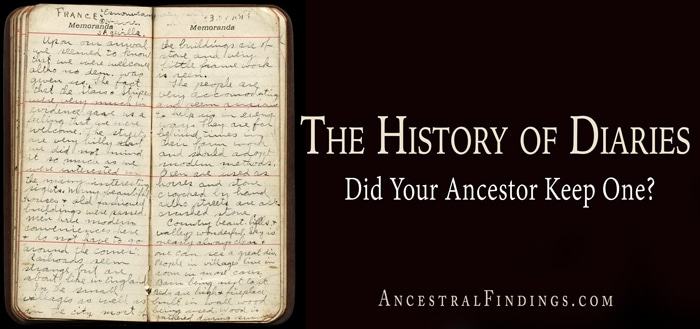 FRANCE
Memoranda
Upon our arrival
we seemed to know
that we were welcome
altho no dem. was
given us. The fact
that the stars & stripes
were very much in
evidence gave us a
feeling that we were
welcome. The streets
are very hilly
did not mind
it so much as we
were interested in
the many interesting
sights. Many beautiful
houses & old fashioned
buildings were passed.
men here modern
conveniences here
& do not have to go
around the corner.
Railroads seem
strange but are
about like in England
In the small
villages as well as
in the city most
Memoranda
the buildings are of
stone and very
little frame work
is seen.
The people are
very accomodating
and seem anxious
to help us in every
way. They are far
behind times in
their farm work
and should adopt
modern methods.
Oxen are used as
horses and stone
crushed by hand
All streets are of
crushed stone.
Country beaut. hills &
valleys wonderful, sky is
nearly always clear &
one can see a great dis.
People in villages live in
room in most cases
Barn being next to it
Beds are high & fireplace
built in wall wood
being used. Wood is
gathered during
THE HISTORY OF DIARIES
Did Your Ancestor Keep One?
ANCESTRALFINDINGS.COM